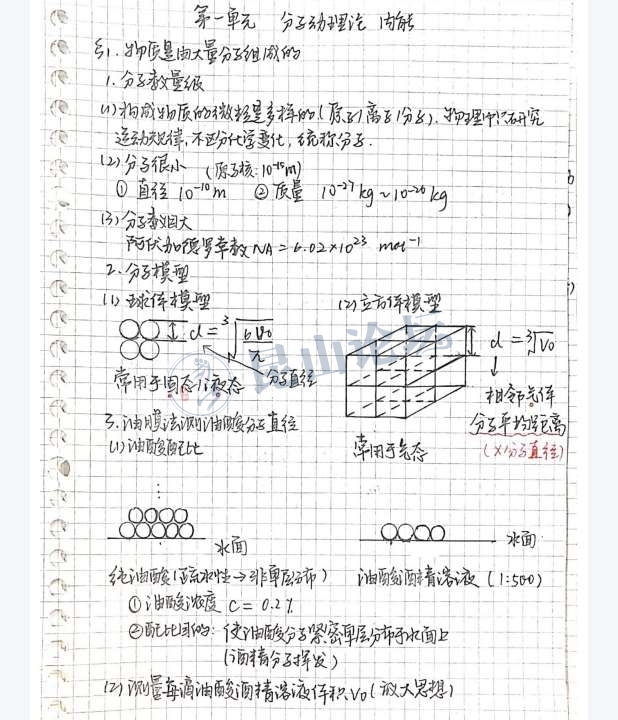 第一单元 分子动理论 内能
§1. 物质是由大量分子组成的
1. 分子数量级
(1) 构成物质的微粒是多样的(原子/离子/分子). 物理中只研究
运动规律, 不区分化学变化, 统称分子.
(2) 分子很小 (原子核: 10⁻¹⁵m)
① 直径 10⁻¹⁰m ② 质量 10⁻²⁷kg ~ 10⁻²⁶kg
(3) 分子数目大
阿伏加德罗常数 NA = 6.02×10²³ mol⁻¹
2. 分子模型
(1) 球体模型 (2) 立方体模型
d = ³√(6V₀/π) d = ³√V₀
分子直径
常用于固态/液态
相邻气体
分子平均距离
(×分子直径)
常用于气态
昆山论坛
3. 油膜法测油酸分子直径
(1) 油酸配比
水面 水面
纯油酸(疏水性→非单层分布) 油酸酒精溶液 (1:500)
① 油酸浓度 c = 0.2%
② 配比目的: 使油酸分子紧密单层分布于水面上
(酒精分子挥发)
(2) 测量每滴油酸酒精溶液体积V₀(放大思想)